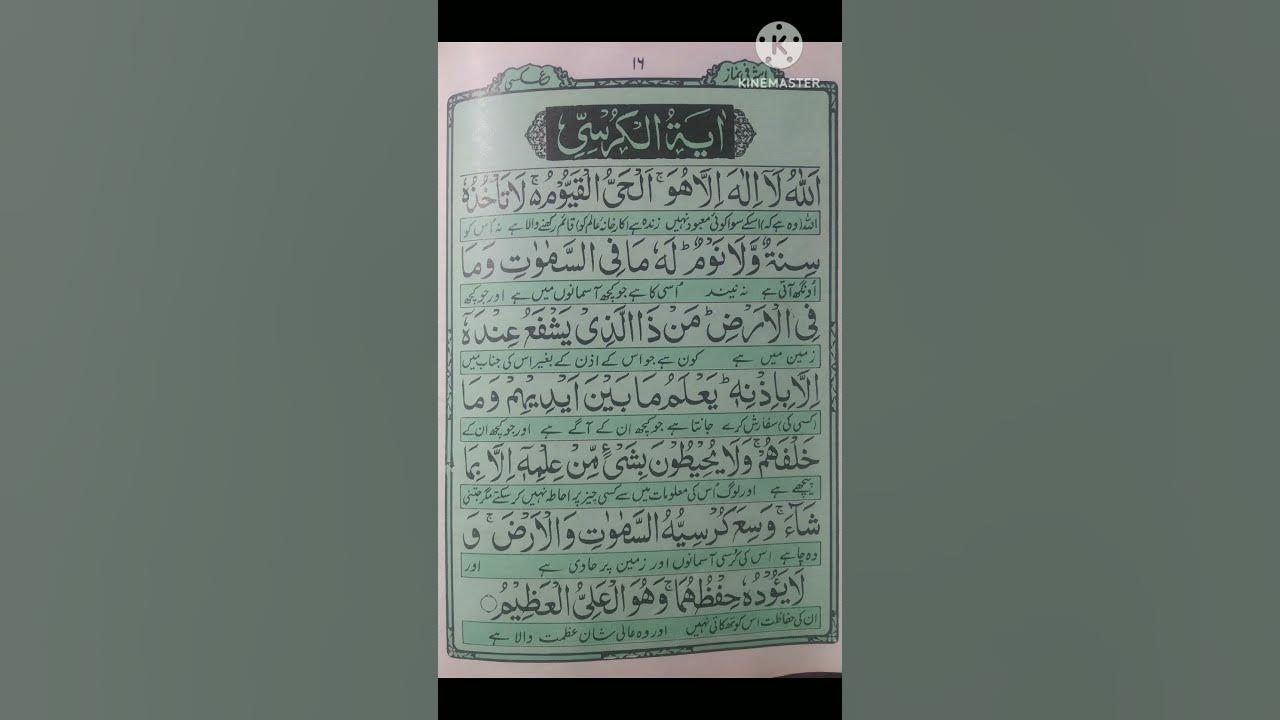 ١٦
عکسی
KINEMASTER
اٰيَةُ الْكُرْسِيِّ
اَللّٰهُ لَآ اِلٰهَ اِلَّا هُوَ ۚ اَلْحَىُّ الْقَيُّوْمُ ۚ لَا تَاْخُذُهٗ
اللہ (وہ ہے کہ) اسکے سوا کوئی معبود نہیں زندہ ہے (کارخانۂ عالم کو) قائم رکھنے والا ہے نہ اُس کو
سِنَةٌ وَّلَا نَوْمٌ ؕ لَهٗ مَا فِى السَّمٰوٰتِ وَمَا
اُونگھ آتی ہے نہ نیند اُسی کا ہے جو کچھ آسمانوں میں ہے اور جو کچھ
فِى الْاَرْضِ ؕ مَنْ ذَا الَّذِىْ يَشْفَعُ عِنْدَهٗٓ
زمین میں ہے کون ہے جو اس کے اذن کے بغیر اس کی جناب میں
اِلَّا بِاِذْنِهٖ ؕ يَعْلَمُ مَا بَيْنَ اَيْدِيْهِمْ وَمَا
(کسی کی) سفارش کرے جانتا ہے جو کچھ ان کے آگے ہے اور جو کچھ ان کے
خَلْفَهُمْ ۚ وَلَا يُحِيْطُوْنَ بِشَىْءٍ مِّنْ عِلْمِهٖٓ اِلَّا بِمَا
پیچھے ہے اور لوگ اُس کی معلومات میں سے کسی چیز پر احاطہ نہیں کر سکتے مگر جتنی
شَآءَ ۚ وَسِعَ كُرْسِيُّهُ السَّمٰوٰتِ وَالْاَرْضَ ۚ وَ
وہ چاہے اس کی کُرسی آسمانوں اور زمین پر حاوی ہے اور
لَا يَئُوْدُهٗ حِفْظُهُمَا ۚ وَهُوَ الْعَلِىُّ الْعَظِيْمُ
ان کی حفاظت اس کو تھکاتی نہیں اور وہ عالی شان عظمت والا ہے